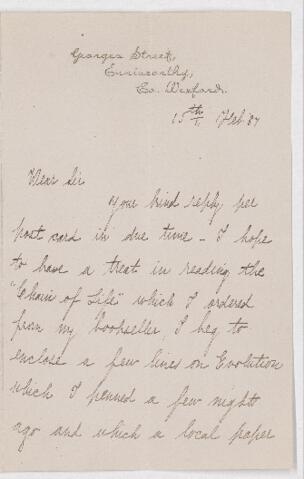 Georges Street,
Enniscorthy,
Co. Wexford.
15th Feb 87
Dear Sir
Your kind reply per
post card in due time - I hope
to have a treat in reading the
"Chain of Life" which I ordered
from my bookseller, I beg to
enclose a few lines on Evolution
which I penned a few night
ago and which a local paper